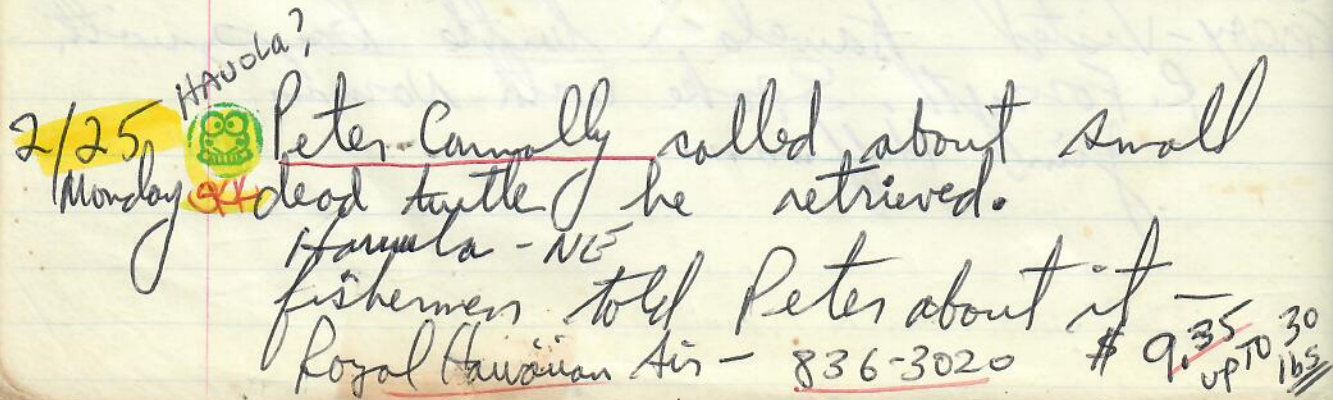 HAUOLA?
2/25 Peter Connally called about small
Monday dead turtle he retrieved.
- NE
fishermen told Peter about it —
Royal Hawaiian Air - 836-3020 $ 9.35 up TO 30 lbs